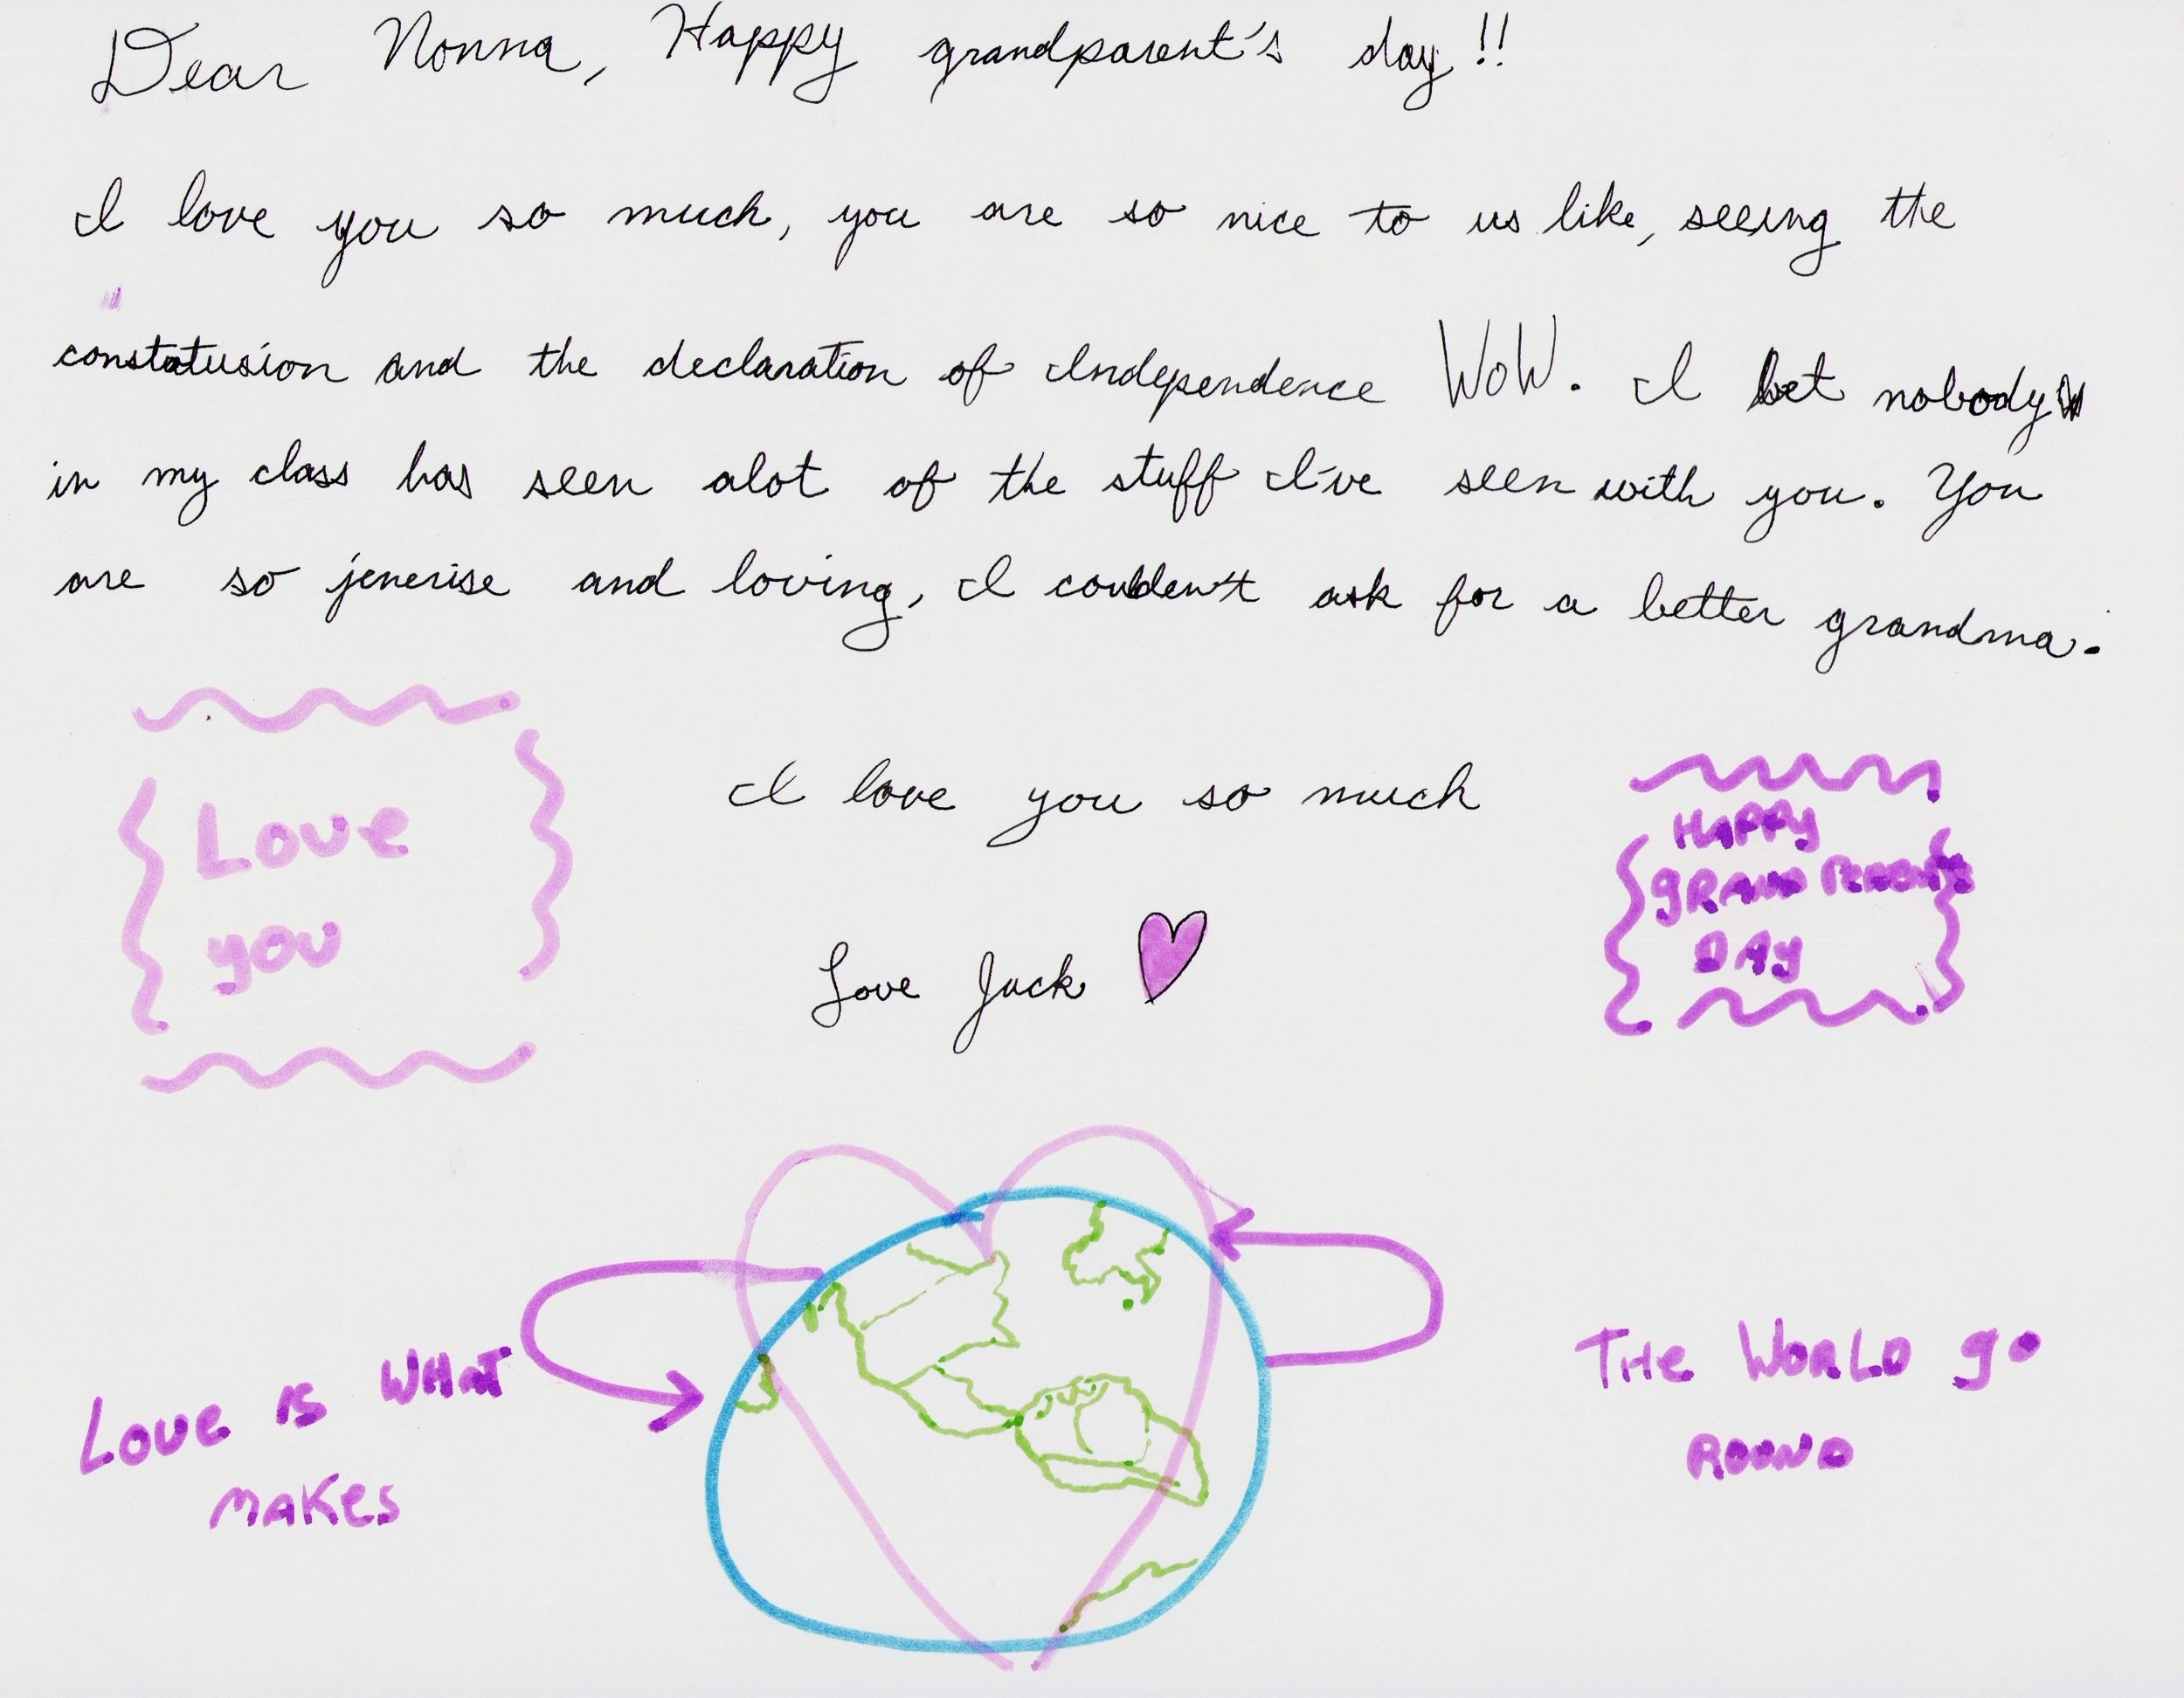 Dear Nonna, Happy grandparent's day!!
I love you so much, you are so nice to us like, seeing the
constatusion and the declaration of Independence WoW. I bet nobody
in my class has seen alot of the stuff I've seen with you. You
are so jenerise and loving, I coulden't ask for a better grandma.
I love you so much
Love Jack
Love
you
HAPPY
gRAND PARENTS
DAY
Love is WHAT
MAKes
THe WORLD go
ROUND